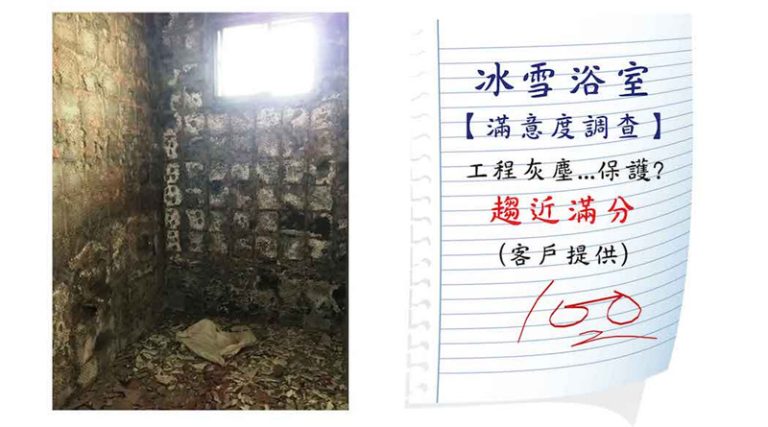 冰雪浴室
【滿意度調查】
工程灰塵...保護?
趨近滿分
(客戶提供)
100